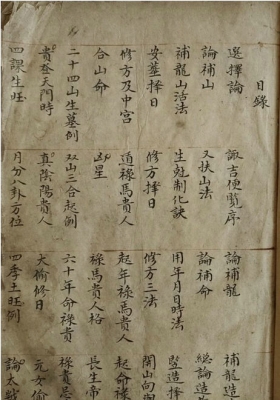 目錄
選擇論 諏吉便覽序 論補龍 補龍造
論補山 又扶山法 論補命 總論造
補龍山活法 生剋制化訣 用年月日時法
安葬擇日 修方擇日 修方三法 豎造擇
修方及中宮 道祿馬貴人 起年祿馬貴人 開山向
合山命 凶星 祿馬貴人格 起命祿
二十四山生墓例 双山三合起例 六十年命祿貴 長生帝
貴登天門時 真陰陽貴人 太偷修日 祿貴忌
四課生旺 月分八卦方位 四季土旺例 元女偷
論太歲